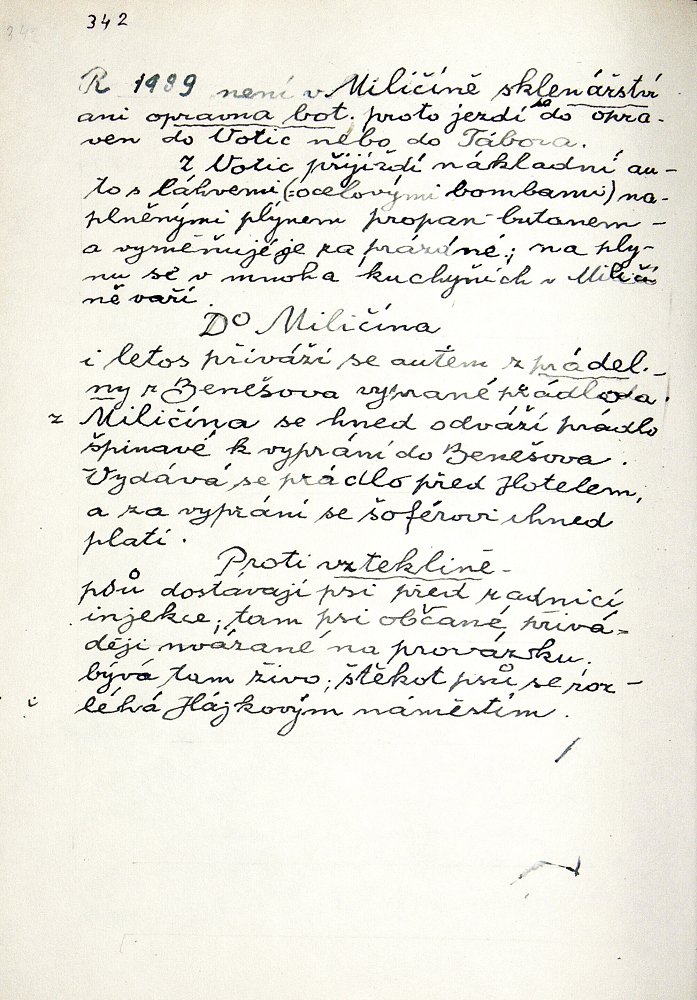 342
R 1989 není v Miličíně sklenářství
ani opravna bot. proto jezdí se do opra-
ven do Votic nebo do Tábora.
Z Votic přijíždí nákladní au-
to s láhvemi (=ocelovými bombami) na-
plněnými plynem propan-butanem -
a vyměňuje je za prázdné.; na ply-
nu se v mnoha kuchyních v Miličí
ně vaří.
Do Miličína
i letos přiváží se autem z prádel.-
ny z Benešova vyprané prádlo a
z Miličína se hned odváží prádlo
špinavé k vyprání do Benešova.
Vydává se prádlo před Hotelem,
a za vyprání se šoférovi ihned
platí.
Proti vzteklině-
psů dostávají psi před radnicí
injekce; tam psi občané přivá-
ději uvázané na provázku.
bývá tam živo; štěkot psů se roz-
léhá Hájkovým náměstím.